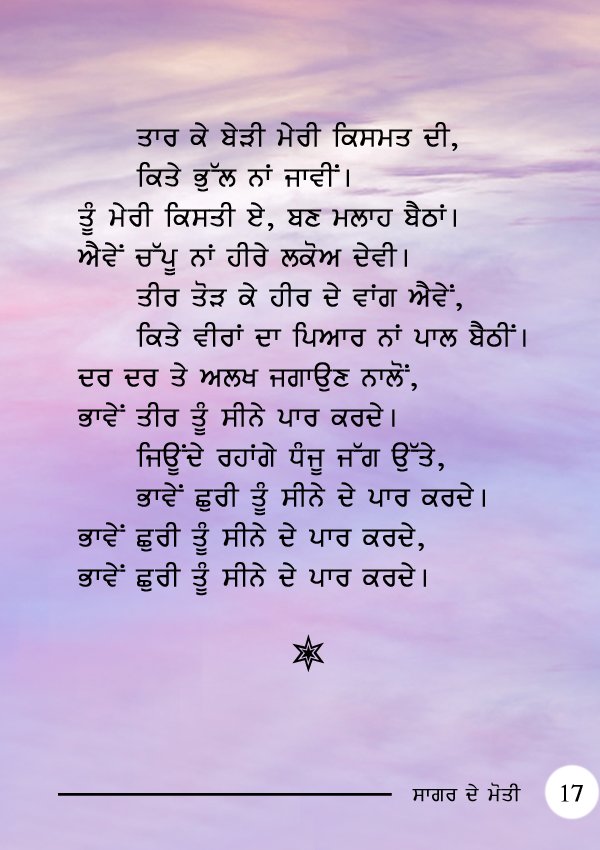 ਤਾਰ ਕੇ ਬੇੜੀ ਮੇਰੀ ਕਿਸਮਤ ਦੀ,
ਕਿਤੇ ਭੁੱਲ ਨਾਂ ਜਾਵੀਂ।
ਤੂੰ ਮੇਰੀ ਕਿਸਤੀ ਏ, ਬਣ ਮਲਾਹ ਬੈਠਾਂ।
ਐਵੇਂ ਚੱਪੂ ਨਾਂ ਹੀਰੇ ਲਕੋਅ ਦੇਵੀ।
ਤੀਰ ਤੋੜ ਕੇ ਹੀਰ ਦੇ ਵਾਂਗ ਐਵੇਂ,
ਕਿਤੇ ਵੀਰਾਂ ਦਾ ਪਿਆਰ ਨਾਂ ਪਾਲ ਬੈਠੀਂ।
ਦਰ ਦਰ ਤੇ ਅਲਖ ਜਗਾਉਣ ਨਾਲੋਂ,
ਭਾਵੇਂ ਤੀਰ ਤੂੰ ਸੀਨੇ ਪਾਰ ਕਰਦੇ।
ਜਿਊਂਦੇ ਰਹਾਂਗੇ ਧੰਜੂ ਜੱਗ ਉੱਤੇ,
ਭਾਵੇਂ ਛੁਰੀ ਤੂੰ ਸੀਨੇ ਦੇ ਪਾਰ ਕਰਦੇ।
ਭਾਵੇਂ ਛੁਰੀ ਤੂੰ ਸੀਨੇ ਦੇ ਪਾਰ ਕਰਦੇ,
ਭਾਵੇਂ ਛੁਰੀ ਤੂੰ ਸੀਨੇ ਦੇ ਪਾਰ ਕਰਦੇ।
ਸਾਗਰ ਦੇ ਮੋਤੀ 17